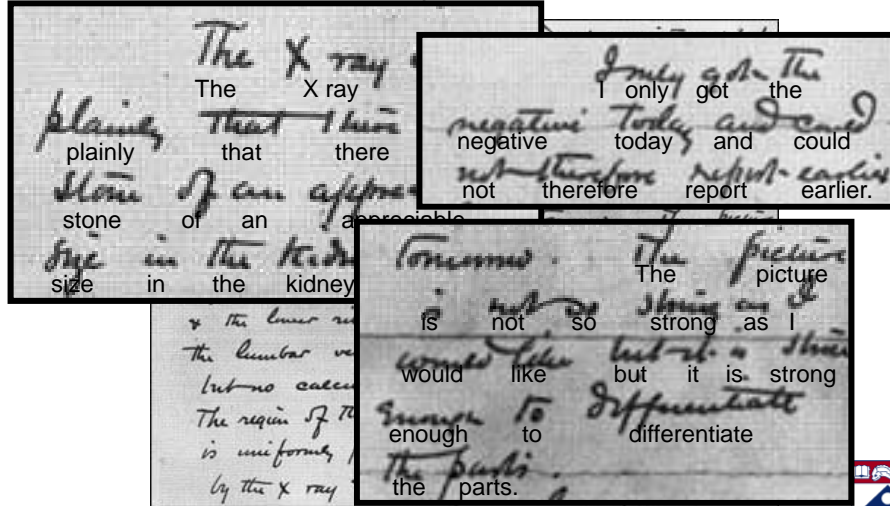 The X ray
The X ray
plainly that there
plainly that there
stone of an
stone of an appreciable
size in the
size in the kidney
I only got the
I only got the
negative today and could
negative today and could
not therefore report earlier
not therefore report earlier.
Tomorrow. The picture
The picture
is not so strong as I
is not so strong as I
would like but it is
would like but it is strong
enough to differentiate
enough to differentiate
the parts.
the parts.
& the lower
the lumbar
but no
The region of
is uniformly
by the X ray